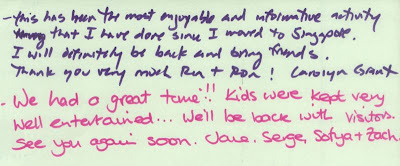 - this has been the most enjoyable and informative activity
that I have done since I moved to Singapore.
I will definitely be back and bring friends.
Thank you very much Ren + Ron! Carolyn Grant
- We had a great time!! Kids were kept very
well entertained... We'll be back with visitors.
See you again soon. Jane. Serge, Sofya + Zach.